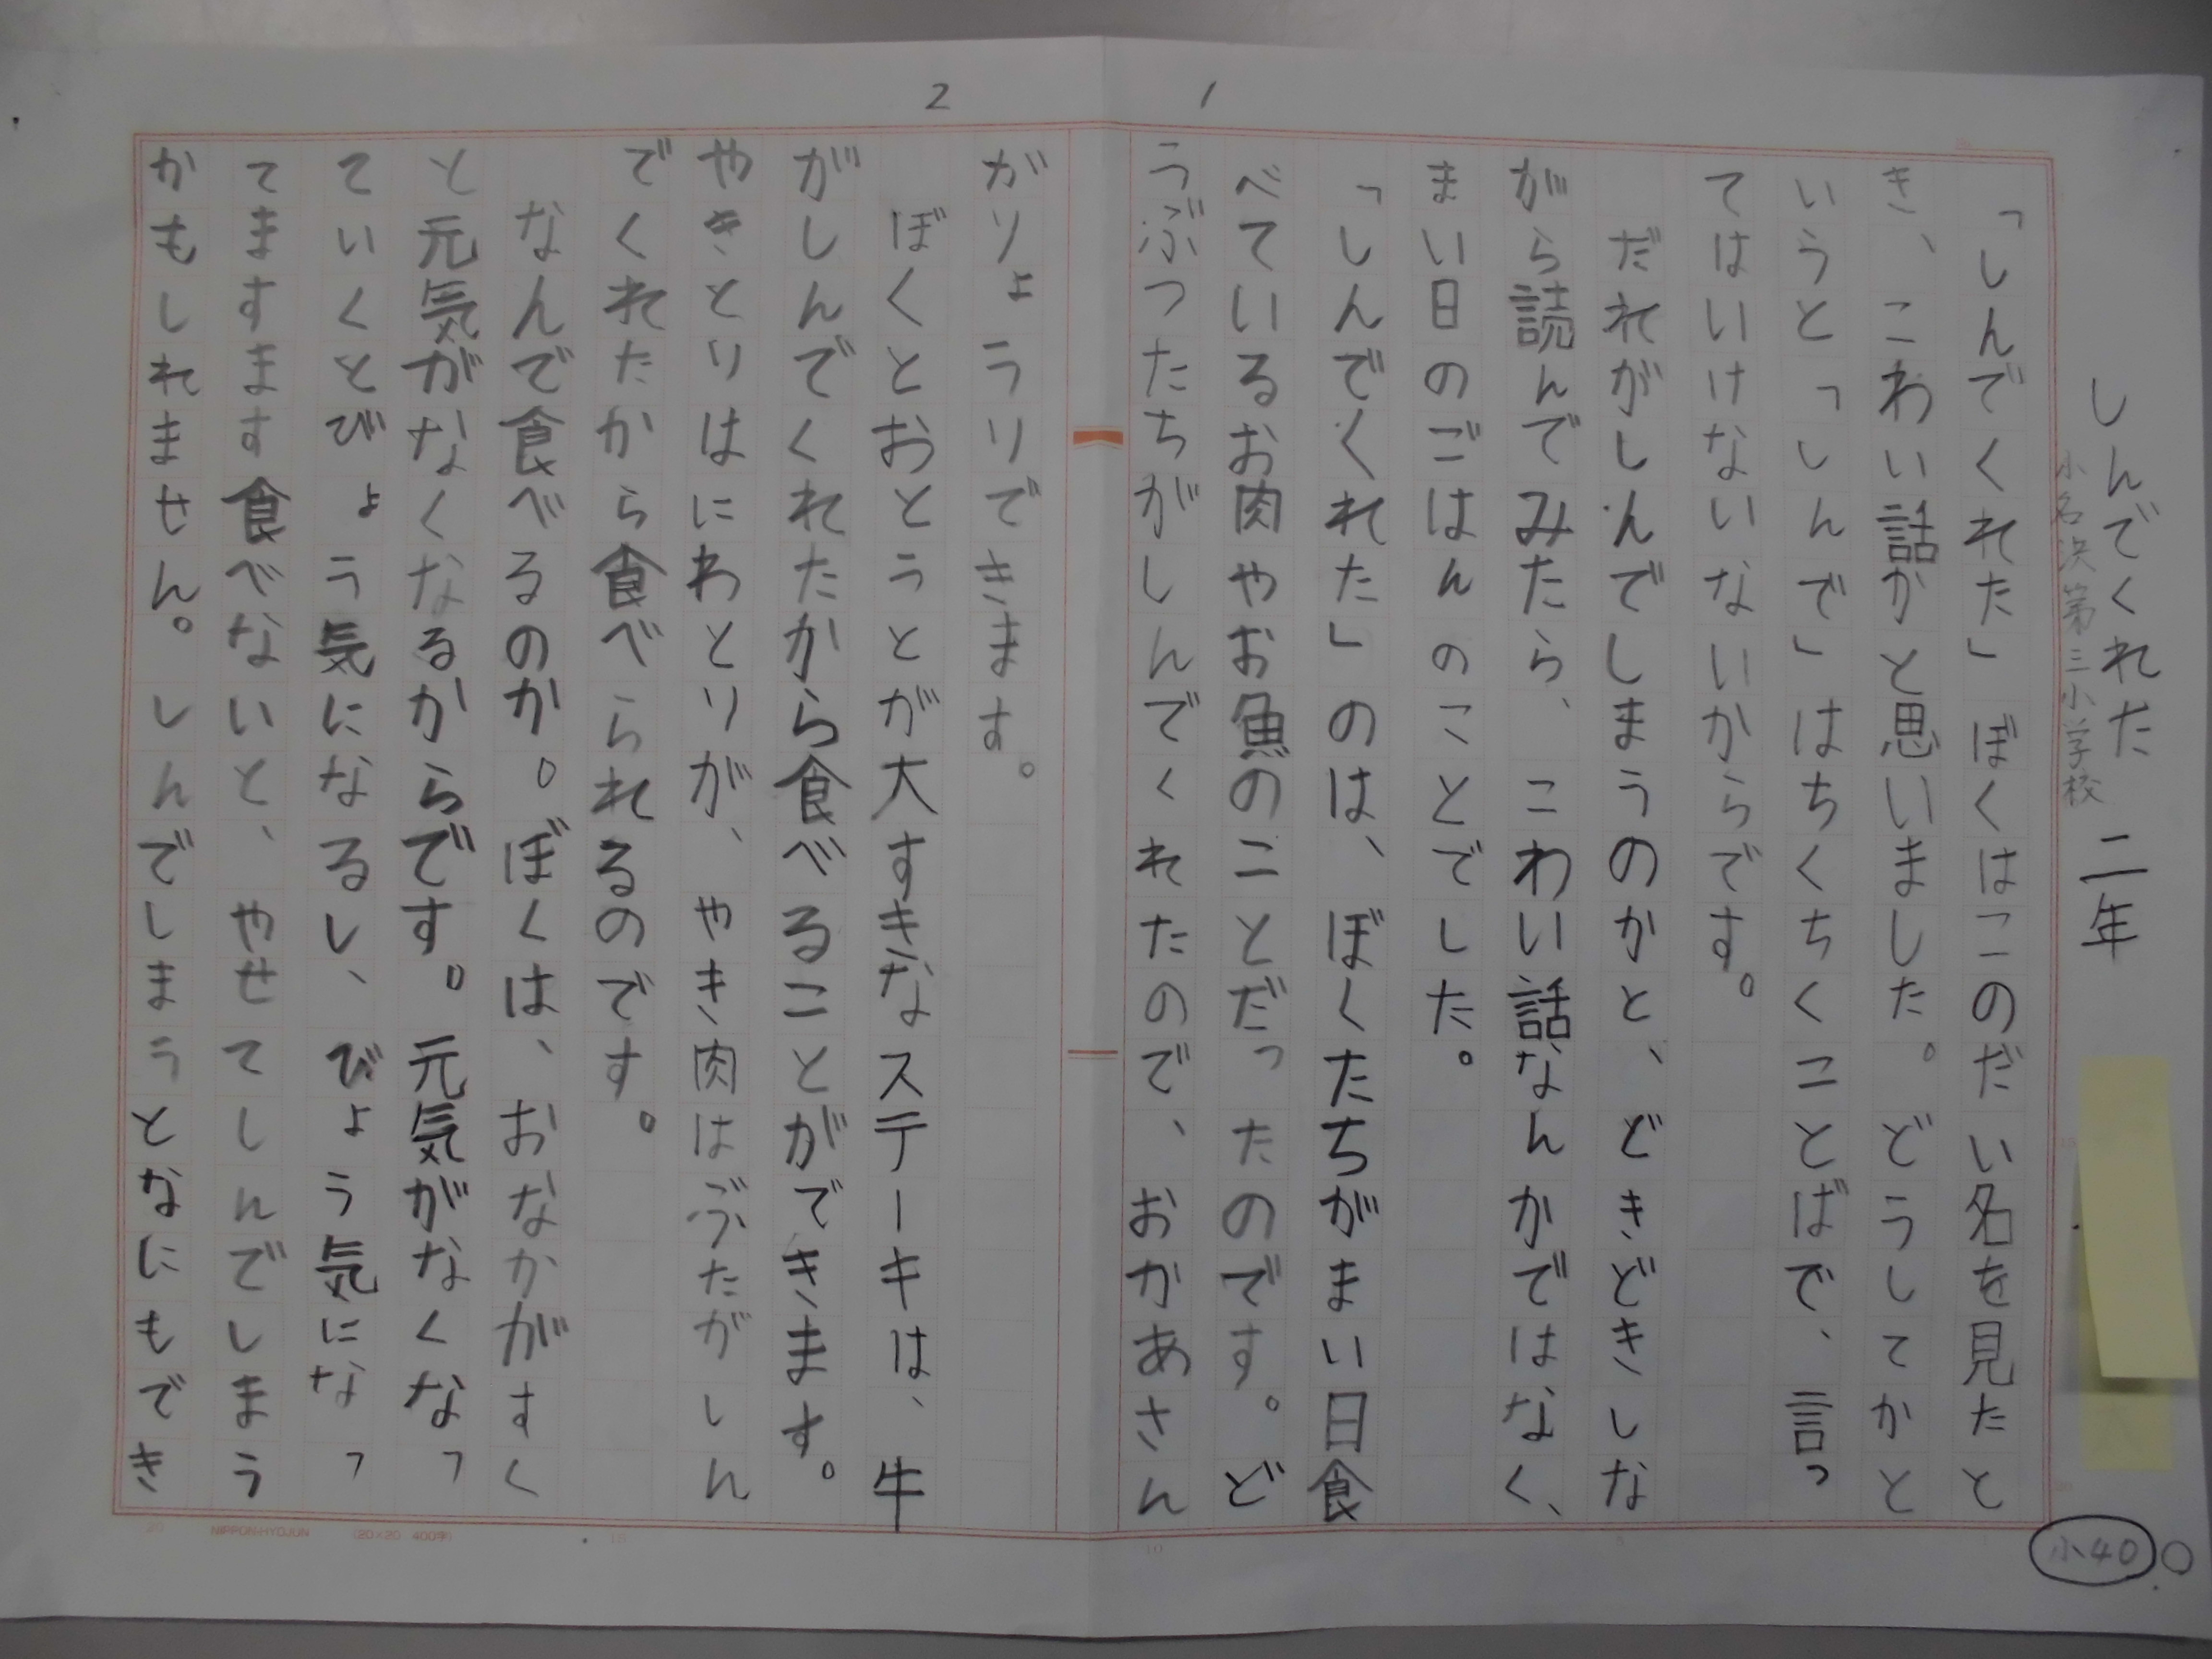 しんでくれた 二年
小名浜第三小学校
「しんでくれた」ぼくはこのだい名を見たと
き、こわい話かと思いました。どうしてかと
いうと「しんで」はちくちくことばで、言っ
てはいけないないないからです。
だれがしんでしまうのかと、どきどきしな
がら読んでみたら、こわい話なんかではなく、
まい日のごはんのことでした。
「しんでくれた」のは、ぼくたちがまい日食
べているお肉やお魚のことだったのです。ど
うぶつたちがしんでくれたので、おかあさん
がりょうりできます。
ぼくとおとうとが大すきなステーキは、牛
がしんでくれたから食べることができます。
やきとりはにわとりが、やき肉はぶたがしん
でくれたから食べられるのです。
なんで食べるのか。ぼくは、おなかがすく
と元気がなくなるからです。元気がなくなっ
ていくとびょう気になるし、びょう気になっ
てますます食べないと、やせてしんでしまう
かもしれません。しんでしまうとなにもでき
1
2
小40
NIPPON-HYOJUN (20×20 400字)
10
15
20